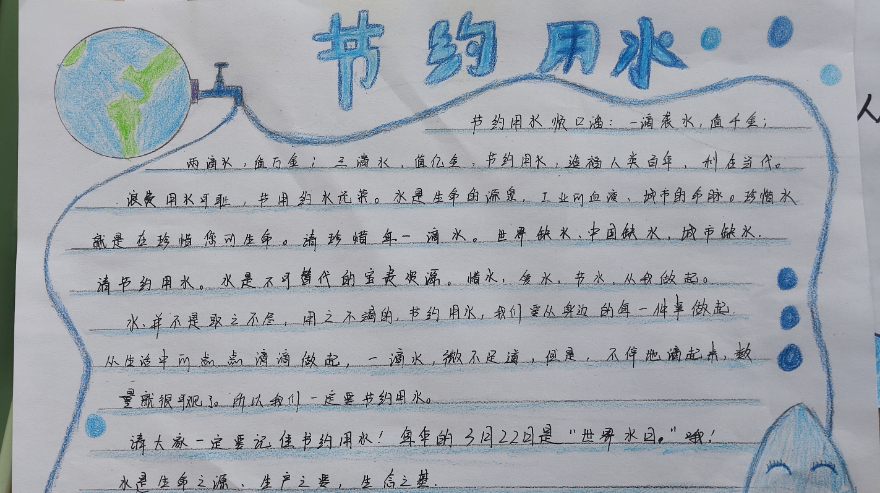 节约用水
节约用水顺口溜：一滴水，值千金；
两滴水，值万金；三滴水，值亿金，节约用水，造福人类百年，利在当代。
浪费用水可耻，节用约水光荣。水是生命的源泉，工业的血液、城市的命脉。珍惜水
就是在珍惜您的生命。请珍惜每一滴水。世界缺水、中国缺水，城市缺水．
请节约用水。水是不可替代的宝贵资源。惜水，爱水，节水，从我做起。
水，并不是取之不尽，用之不竭的，节约用水，我们要从身边的每一件事做起
从生活中的点点滴滴做起，一滴水，微不足道，但是，不停地滴起来，数
量就很可观了。所以我们一定要节约用水。
请大家一定要记住节约用水！每年的3月22日是“世界水日。”哦！
水是生命之源、生产之要，生态之基．
人